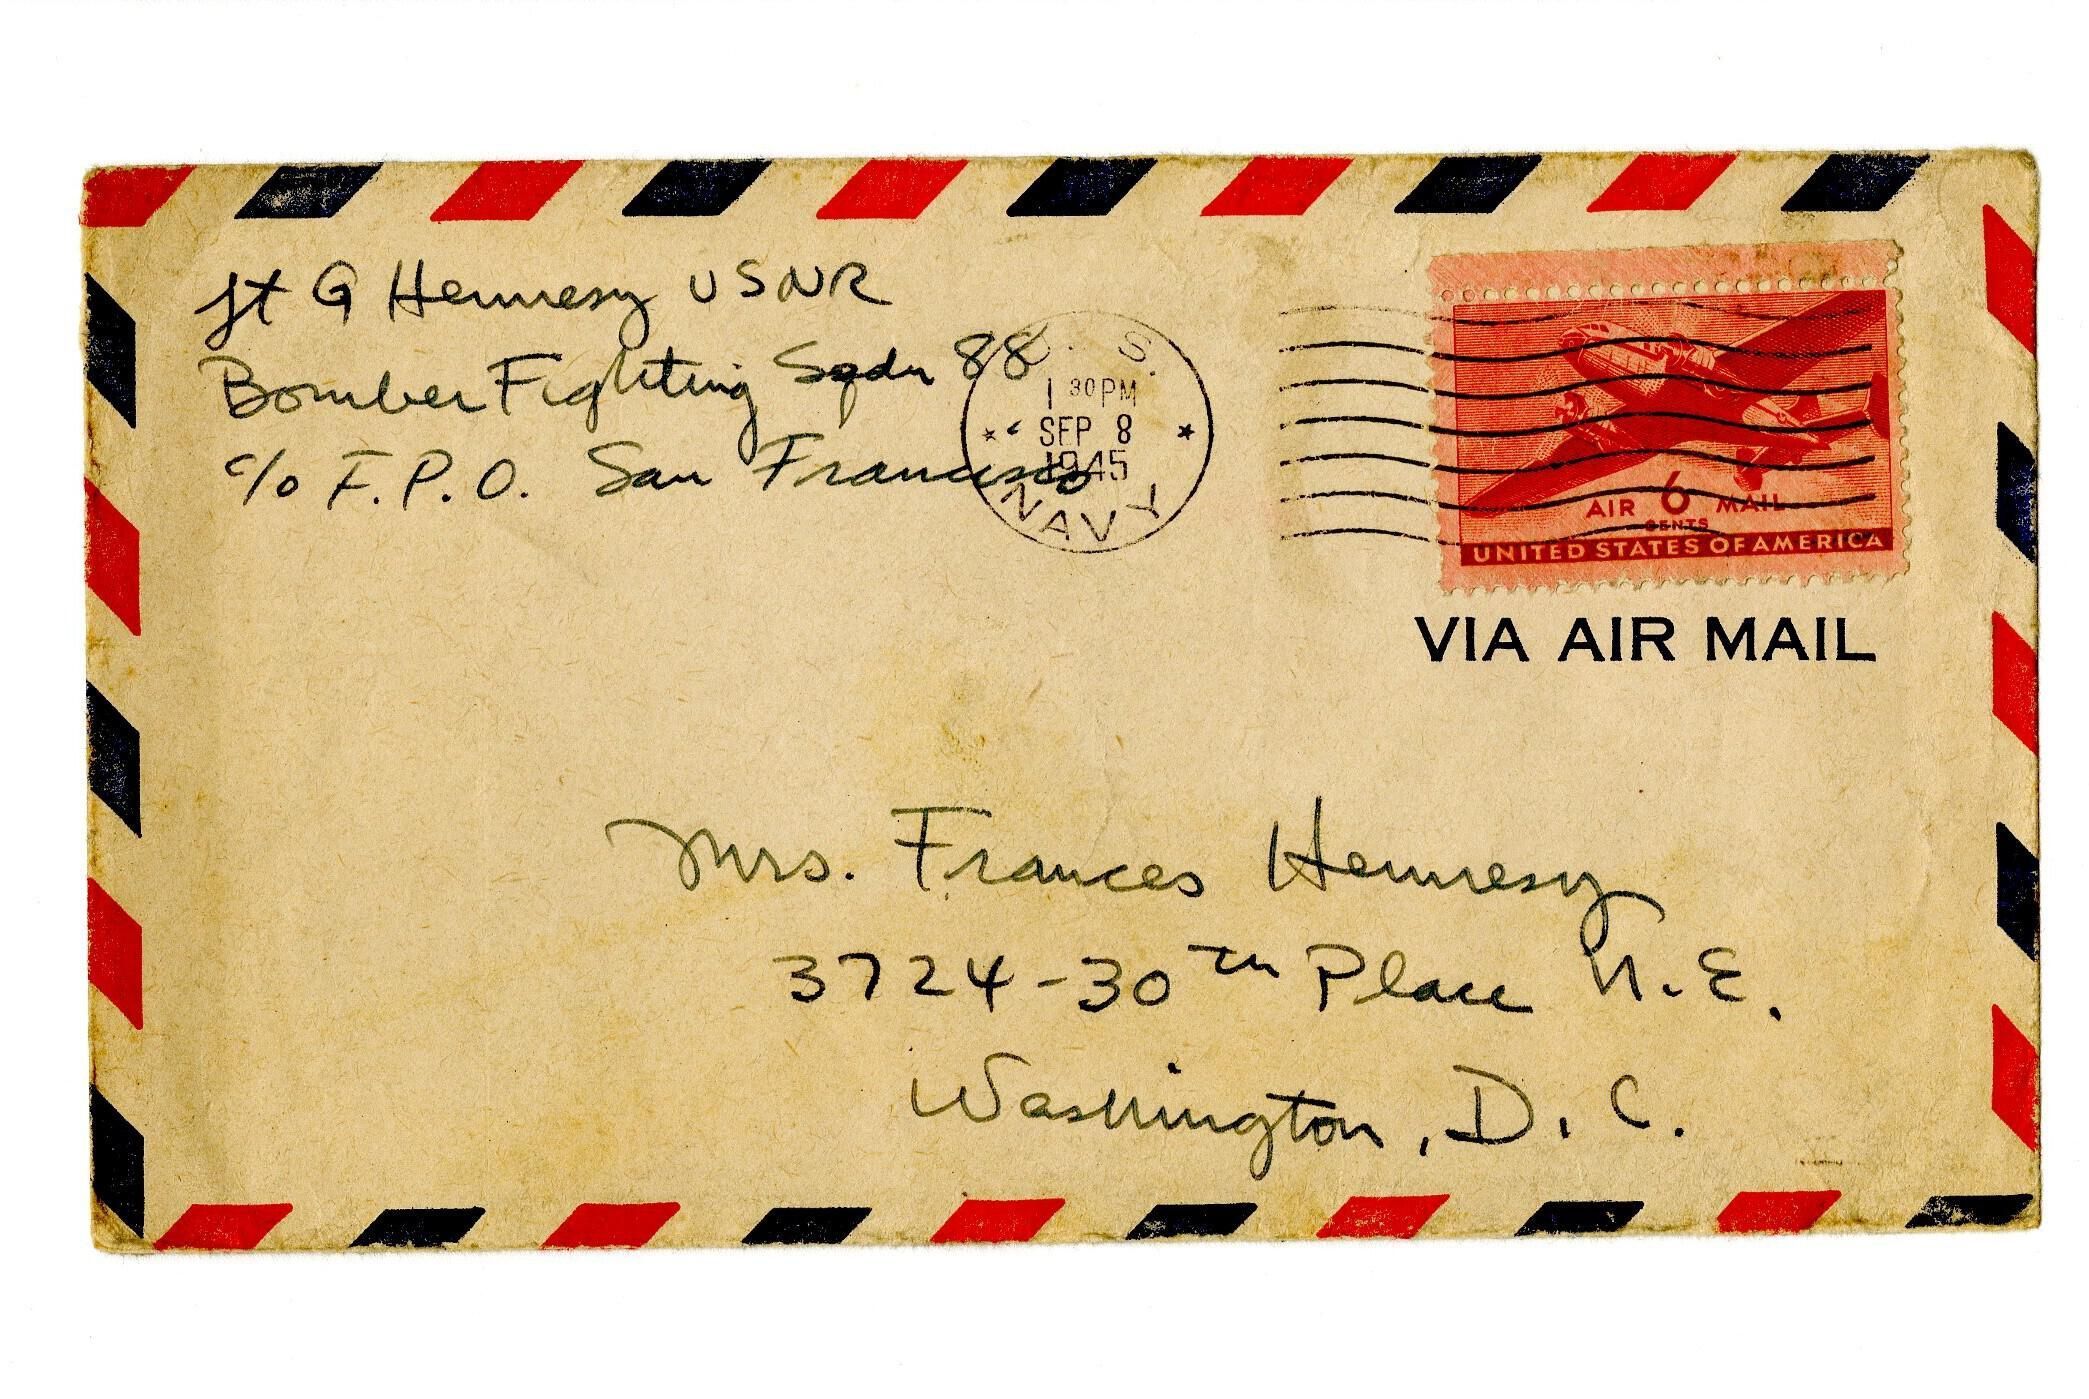 Lt G Hennesy USNR
Bomber Fighting Sqdn 88
c/o F.P.O. San Francisco
U. S.
1 30 PM
SEP 8
1945
NAVY
AIR 6 MAIL
CENTS
UNITED STATES OF AMERICA
VIA AIR MAIL
Mrs. Frances Hennesy
3724-30TH Place N.E.
Washington, D.C.